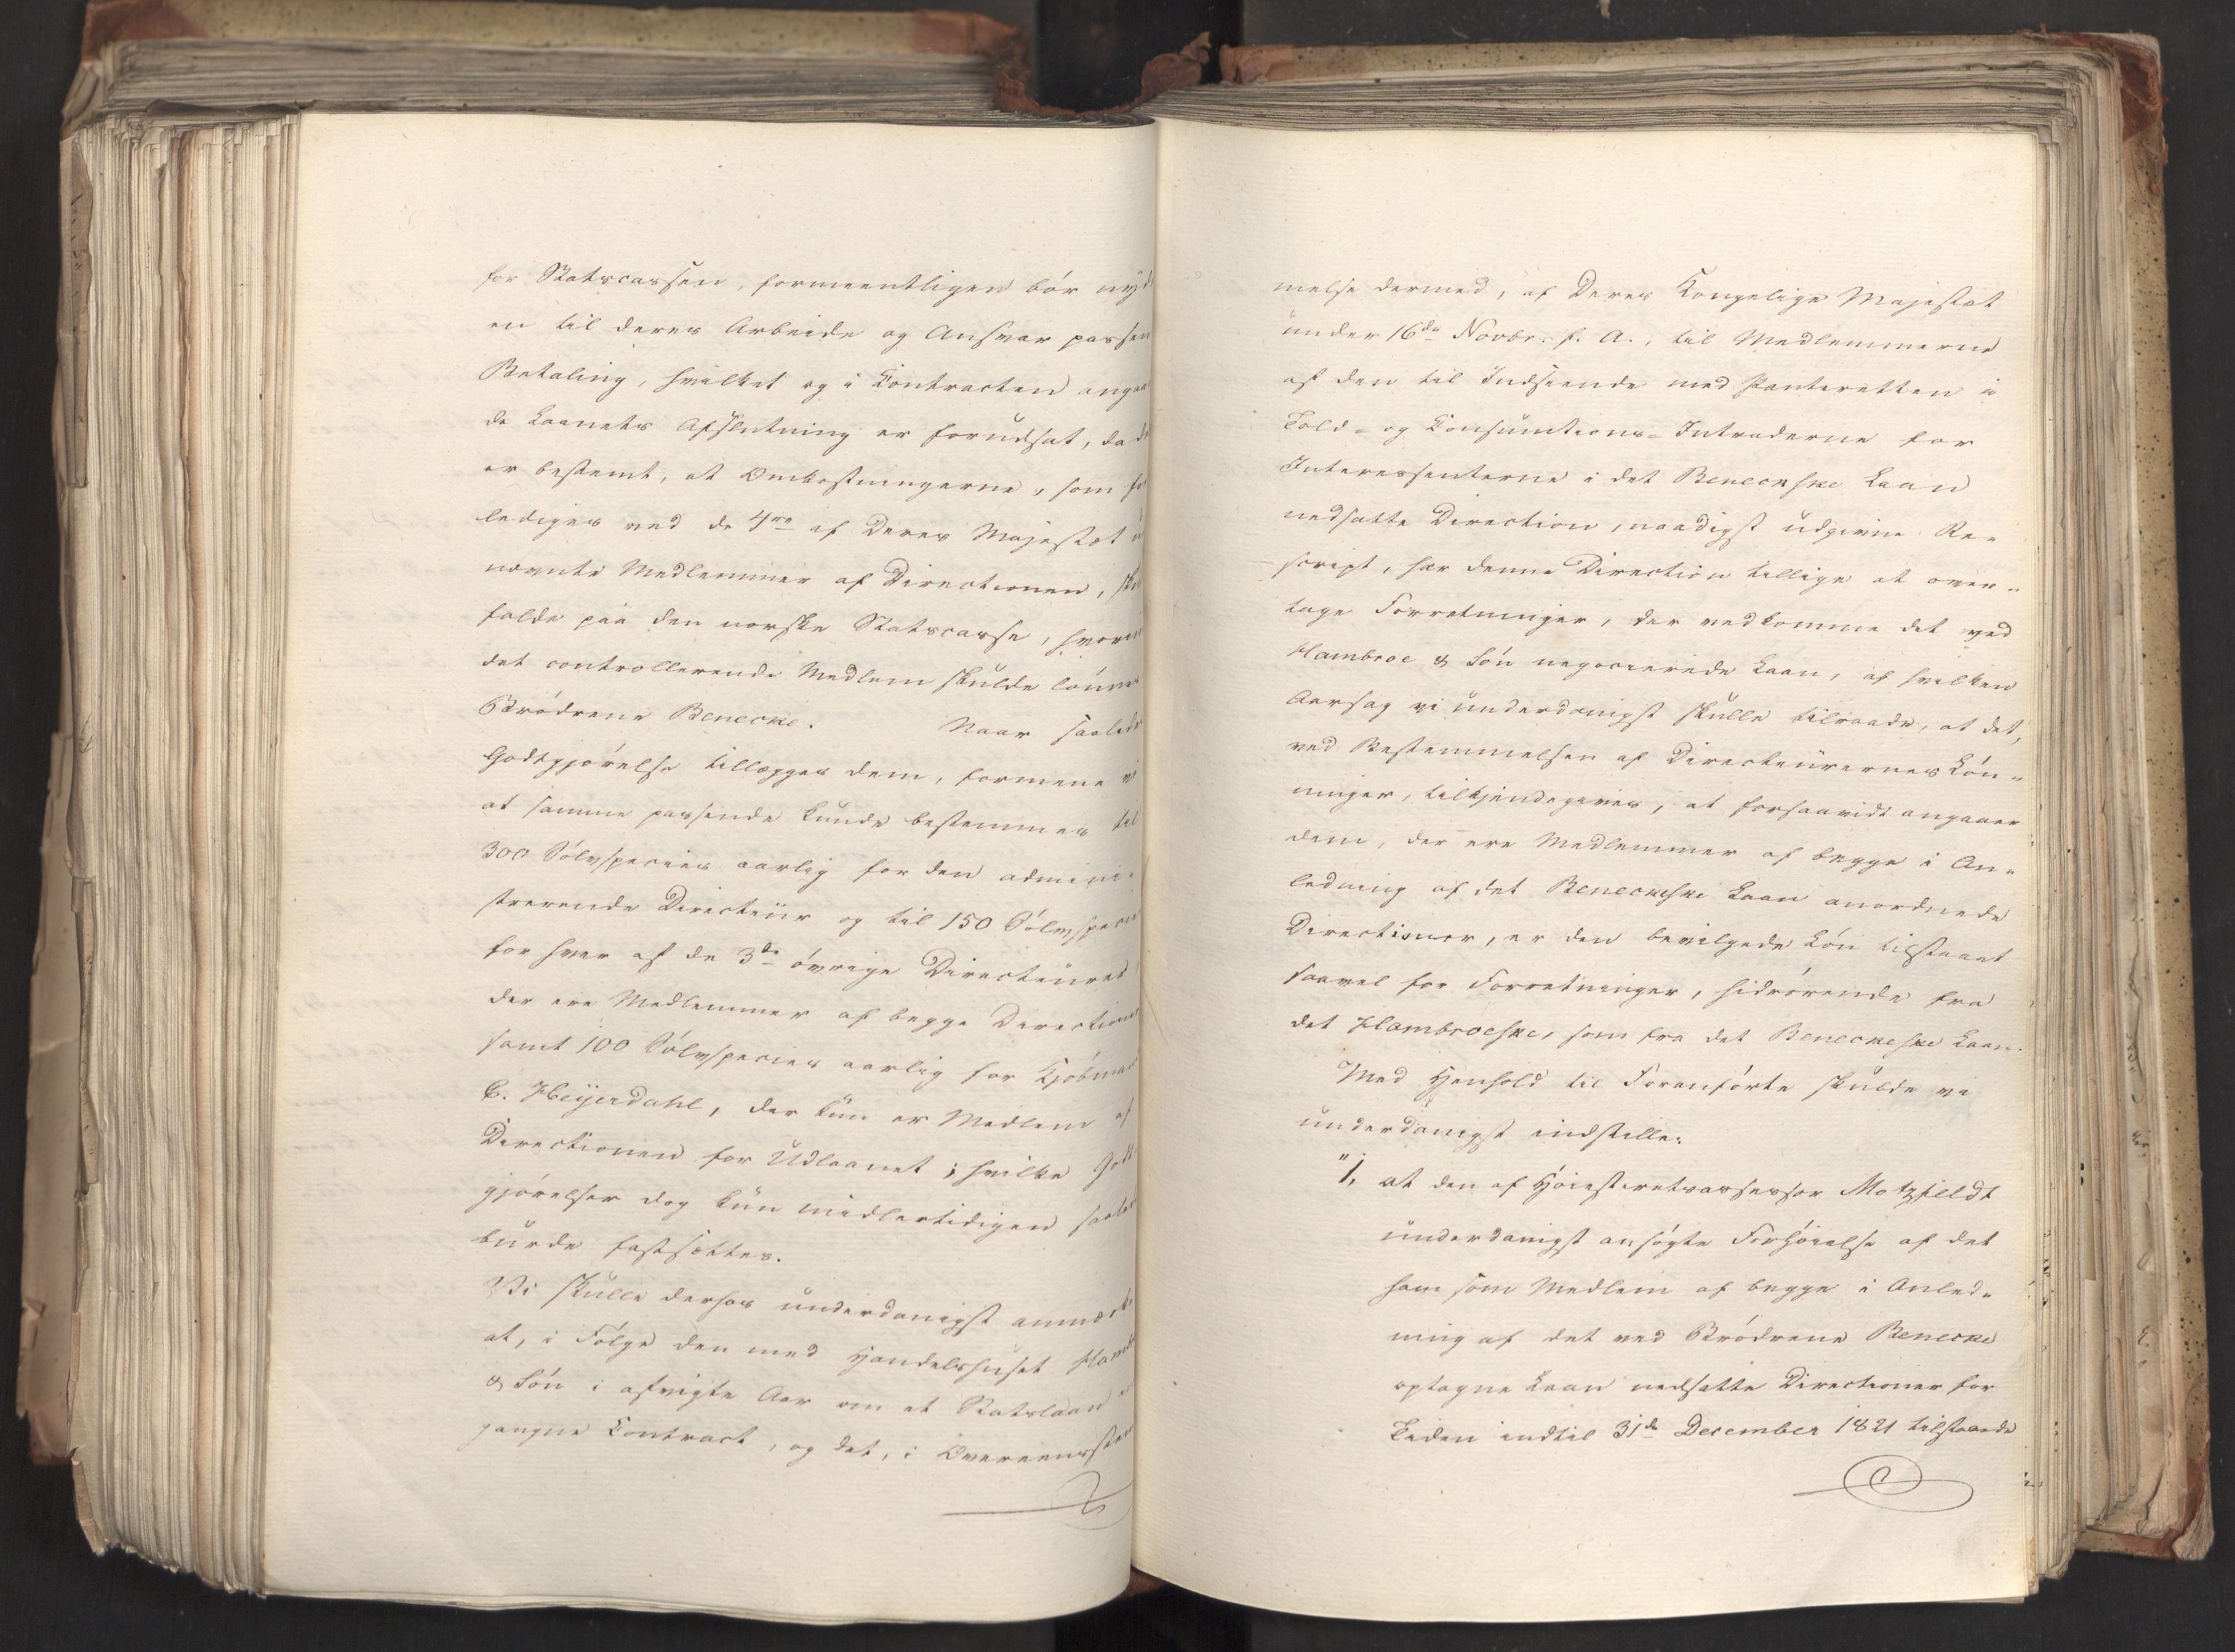 for Statscassen, formeentligen bör nyde
en til deres Arbeide og Ansvar passen
Betaling, hvilket og i Contracten angaa
de Laanets Afslutning er forudsat, da de
er bestemt, at Omkostningerne, som for
lediges ved de 4re af Deres Majestæt ud
nævnte Medlemmer af Directionen, skul
falde paa den norske Statscasse, hvorim
det controllerende Medlem skulde lönnes
Brödrene Benecke. Naar saaledes
Godtgjörelse tillægges dem, formene vi
at samme passende kunde bestemmes til
300 Sölvspecies aarlig for den admini-
strerende Directeur og til 150 Sölvspecies
for hver af de 3de övrige Directeurer
der ere Medlemmer af begge Directioner
samt 100 Sölvspecies aarlig for Kjöbmand
C. Heyerdahl, der kun er Medlem af
Directionen for Udlaanet; hvilke Godt-
gjörelser dog kun midlertidigen saaledes
burde fastsættes.
Vi skulle derhos underdanigst anmærke
at, i Fölge den med Handelshuset Hambr
& Sön i afvigte Aar om et Statslaan
gangne Contract, og det, i Overeensstem
melse dermed, af Deres Kongelige Majestæt
under 16de Novbr. f. A., til Medlemmerne
af den til Indseende med Panteretten i
Told- og Consumtions-Intraderne for
Interessenterne i det Beneckske Laan
nedsatte Direction, naadigst udgivne Re-
script, har denne Direction tillige at over-
tage Forretninger, der vedkomme det ved
Hambroe & Sön negocierede Laan, af hvilken
Aarsag vi underdanigst skulle tilraade, at det,
ved Bestemmelsen af Directeurernes Lön-
ninger, tilkjendegives, at forsaavidt angaaer
dem, der ere Medlemmer af begge i An-
ledning af det Beneckeske Laan anordnede
Directioner, er den bevilgede Lön tilstaaet
saavel for Forretninger, hidrörende fra
det Hambroeske, som fra det Beneckeske Laan.
Med Henhold til Foranförte skulde vi
underdanigst indstille:
"1, at den af Höiesteretsassessor Motzfeldt
underdanigst ansögte Forhöielse af det
ham som Medlem af begge i Anled-
ning af det ved Brödrene Benecke
optagne Laan nedsatte Directioner for
Tiden indtil 31de December 1821 tilstaaede